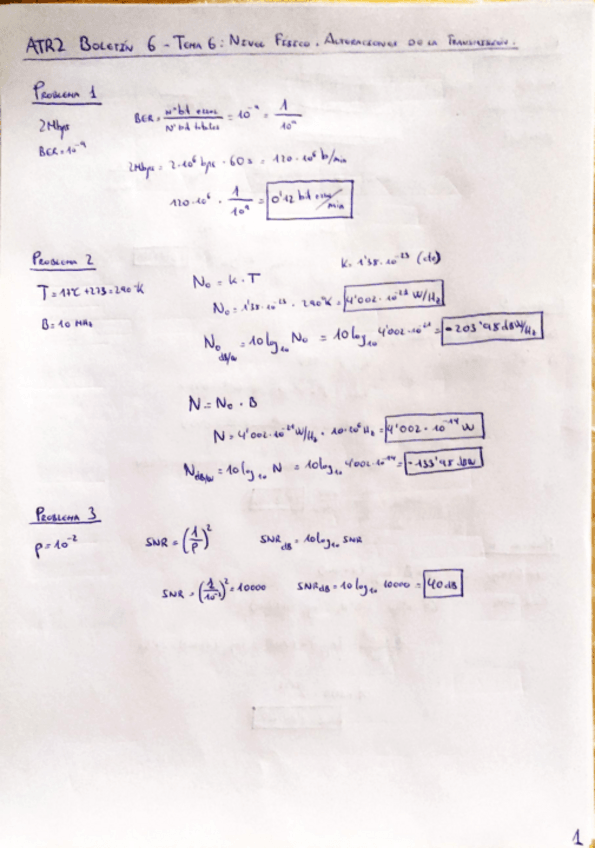 ATR2 BOLETÍN 6 - TEMA 6: NIVEL FÍSICO. ALTERACIONES DE LA TRANSMISIÓN.
PROBLEMA 1
2Mbps
BER = nº bit error / Nº bit totales = 10^-9 = 1 / 10^9
BER = 10^-9
2Mbps = 2·10^6 bps · 60 s = 120·10^6 b/min
120·10^6 · 1 / 10^9 = 0'12 bit error/min
PROBLEMA 2
K = 1'38·10^-23 (cte)
N₀ = K·T
T = 17ºC + 273 = 290ºK
N₀ = 1'38·10^-23 · 290ºK = W/Hz
B = 10 MHz
N₀ = 10 log₁₀ N₀ = 10 log₁₀ = -203'98 dBW/Hz
N = N₀ · B
N = 4'002·10^-21 W/Hz · 10·10^6 Hz = 4'002·10^-14 W
= 10 log₁₀ N = 10 log₁₀ 4'002·10^-14 = -133'98 dBW
PROBLEMA 3
p = 10^-2
SNR = (1/p)^2 SNR dB = 10 log₁₀ SNR
SNR = (1/10^-2)^2 = 10000 SNR dB = 10 log₁₀ 10000 = 40 dB
1